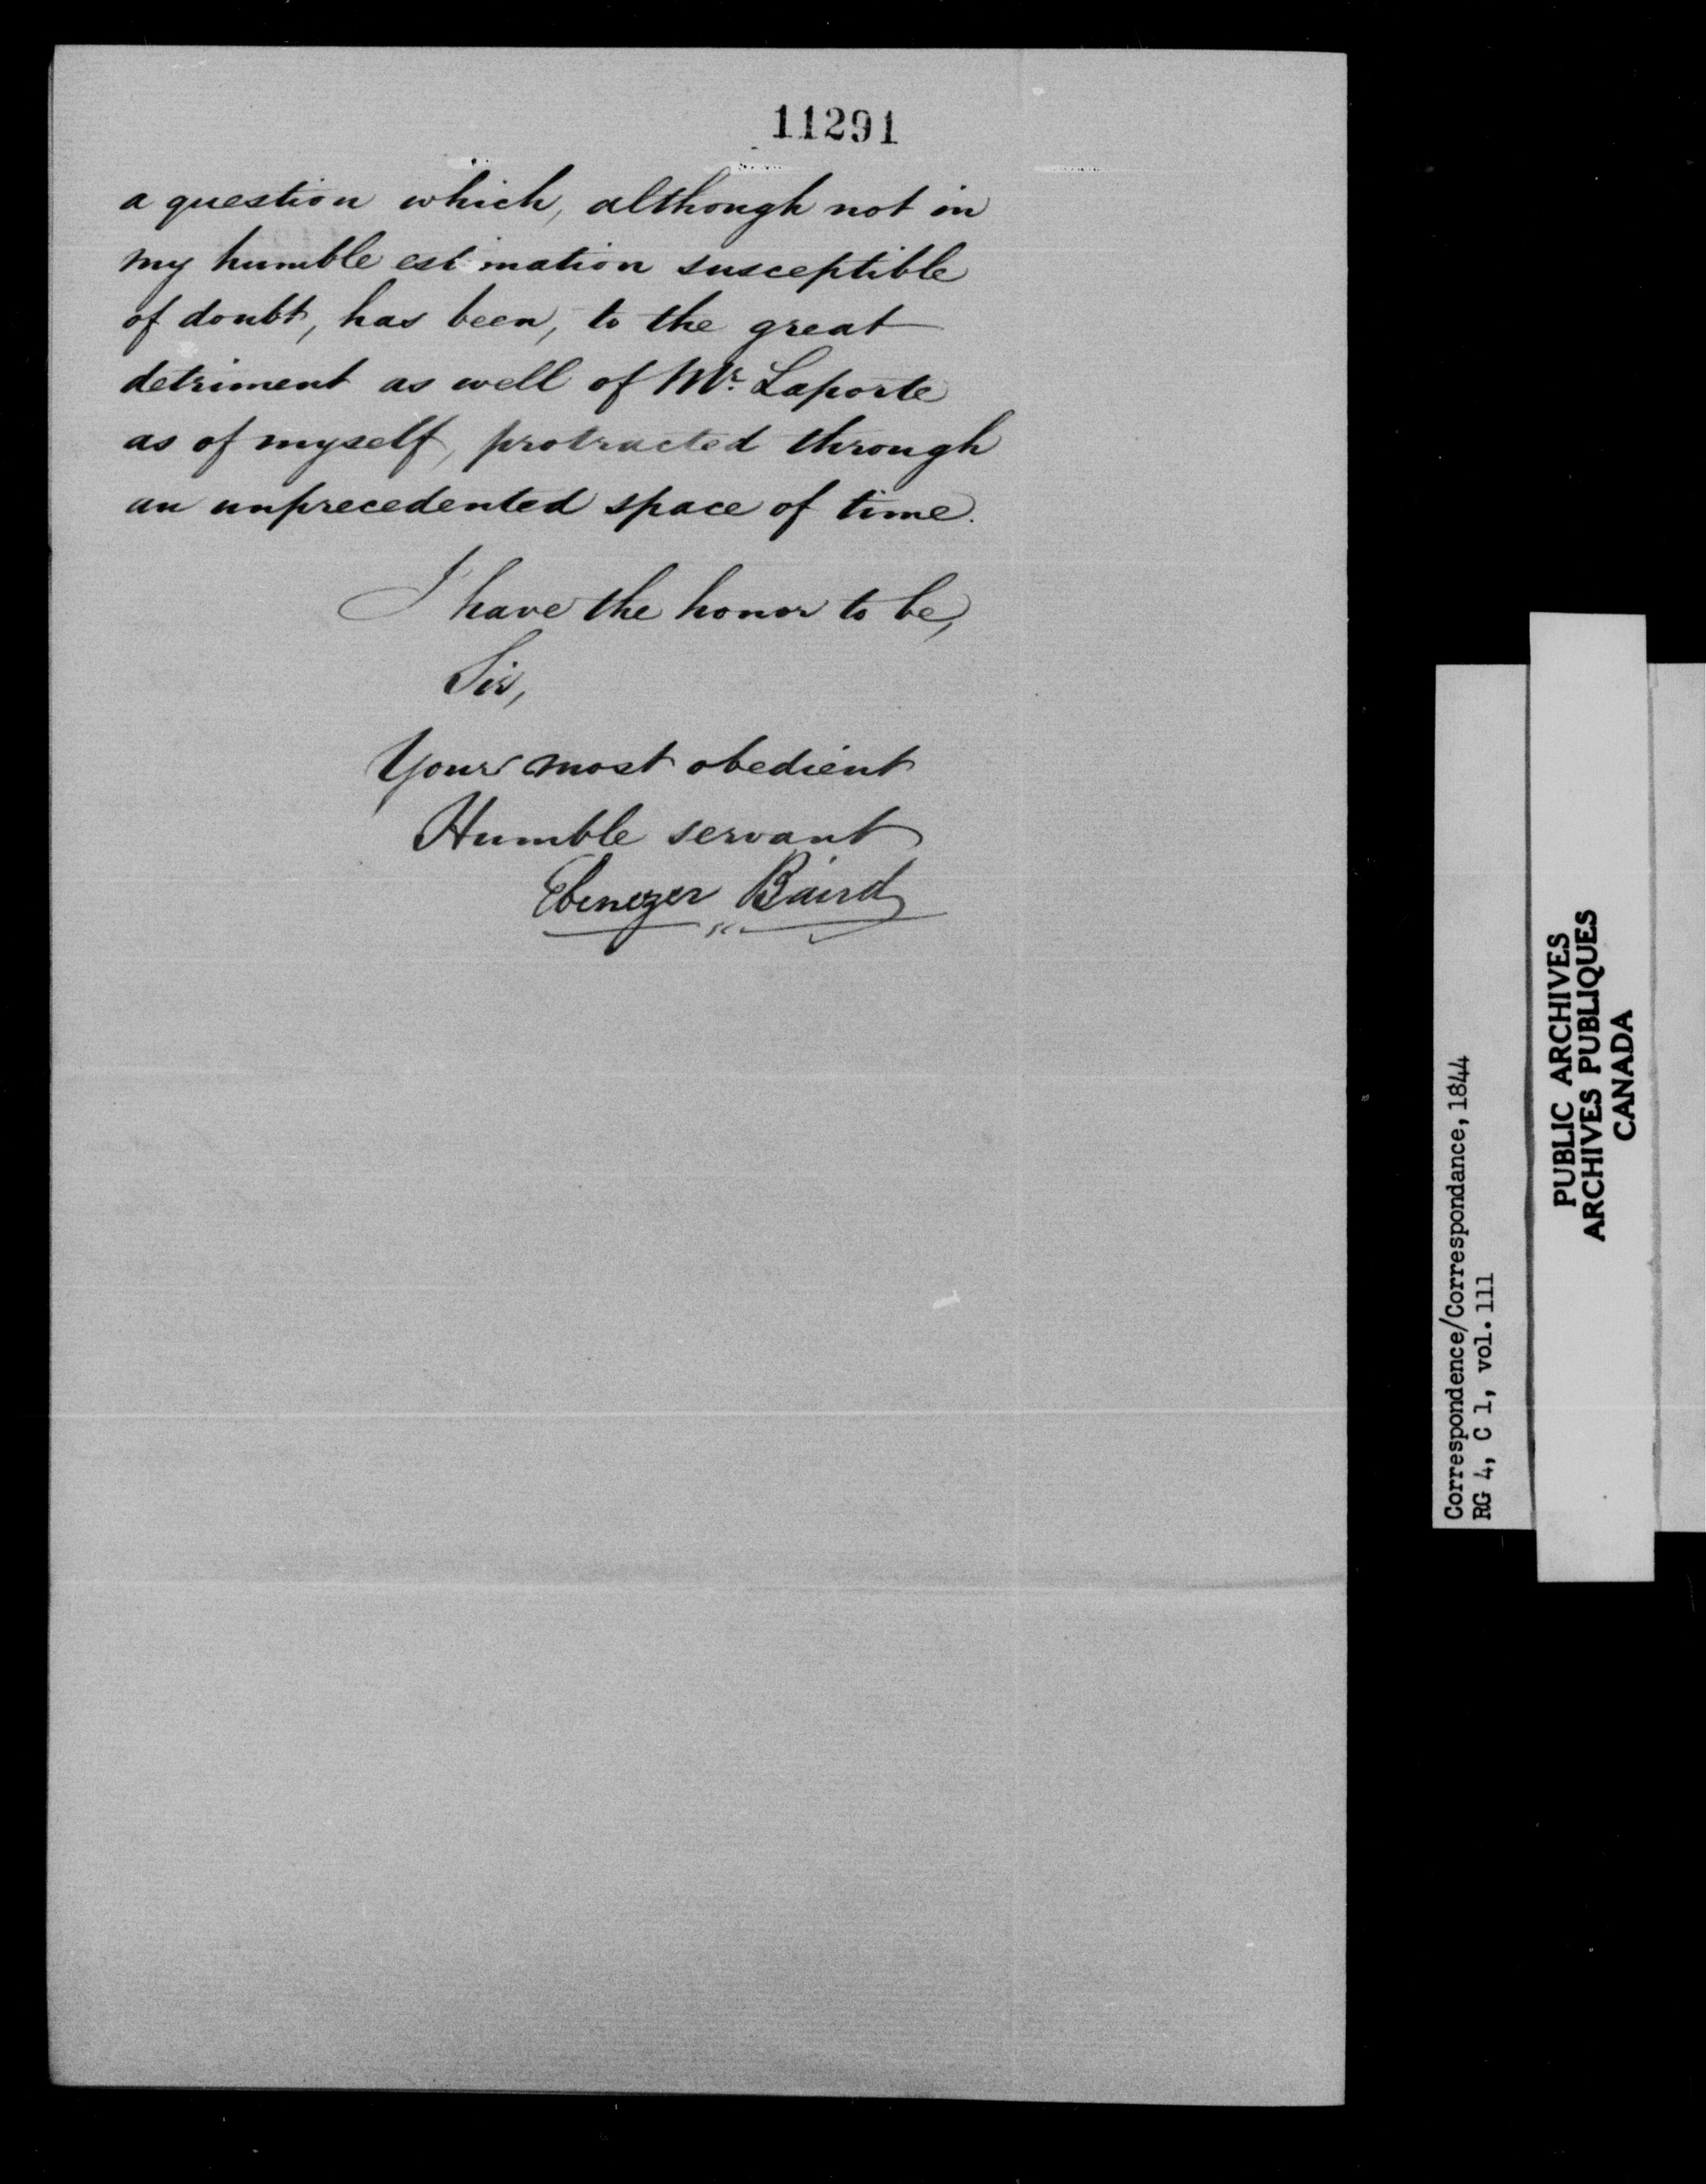 11291
a question which, although not in
my humble estimation susceptible
of doubt, has been, to the great
detriment as well of Mr. Laporte
as of myself, protracted through
an unprecedented space of time.
I have the honor to be,
Sir,
Your most obedient
Humble servant
Ebenezer Baird
Correspondence/Correspondance, 1844
RG 4, C 1, vol. 111
PUBLIC ARCHIVES
ARCHIVES PUBLIQUES
CANADA